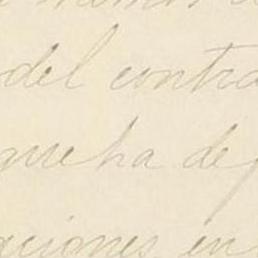 del contra
que ha de
aciones en